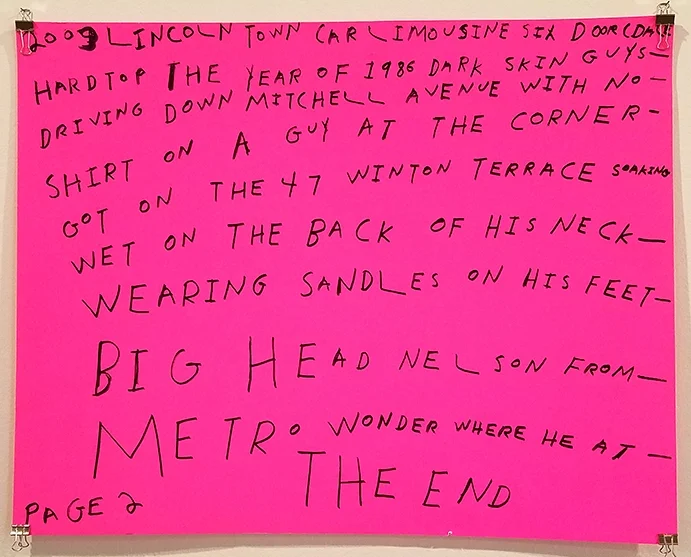 2009 LINCOLN TOWN CAR LIMOUSINE SIX DOOR
HARDTOP THE YEAR OF 1986 DARK SKIN GUYS—
DRIVING DOWN MITCHELL AVENUE WITH NO—
SHIRT ON A GUY AT THE CORNER-
GOT ON THE 47 WINTON TERRACE SOAKING
WET ON THE BACK OF HIS NECK—
WEARING SANDLES ON HIS FEET—
BIG HEAD NELSON FROM—
METRO WONDER WHERE HE AT—
THE END
PAGE 2